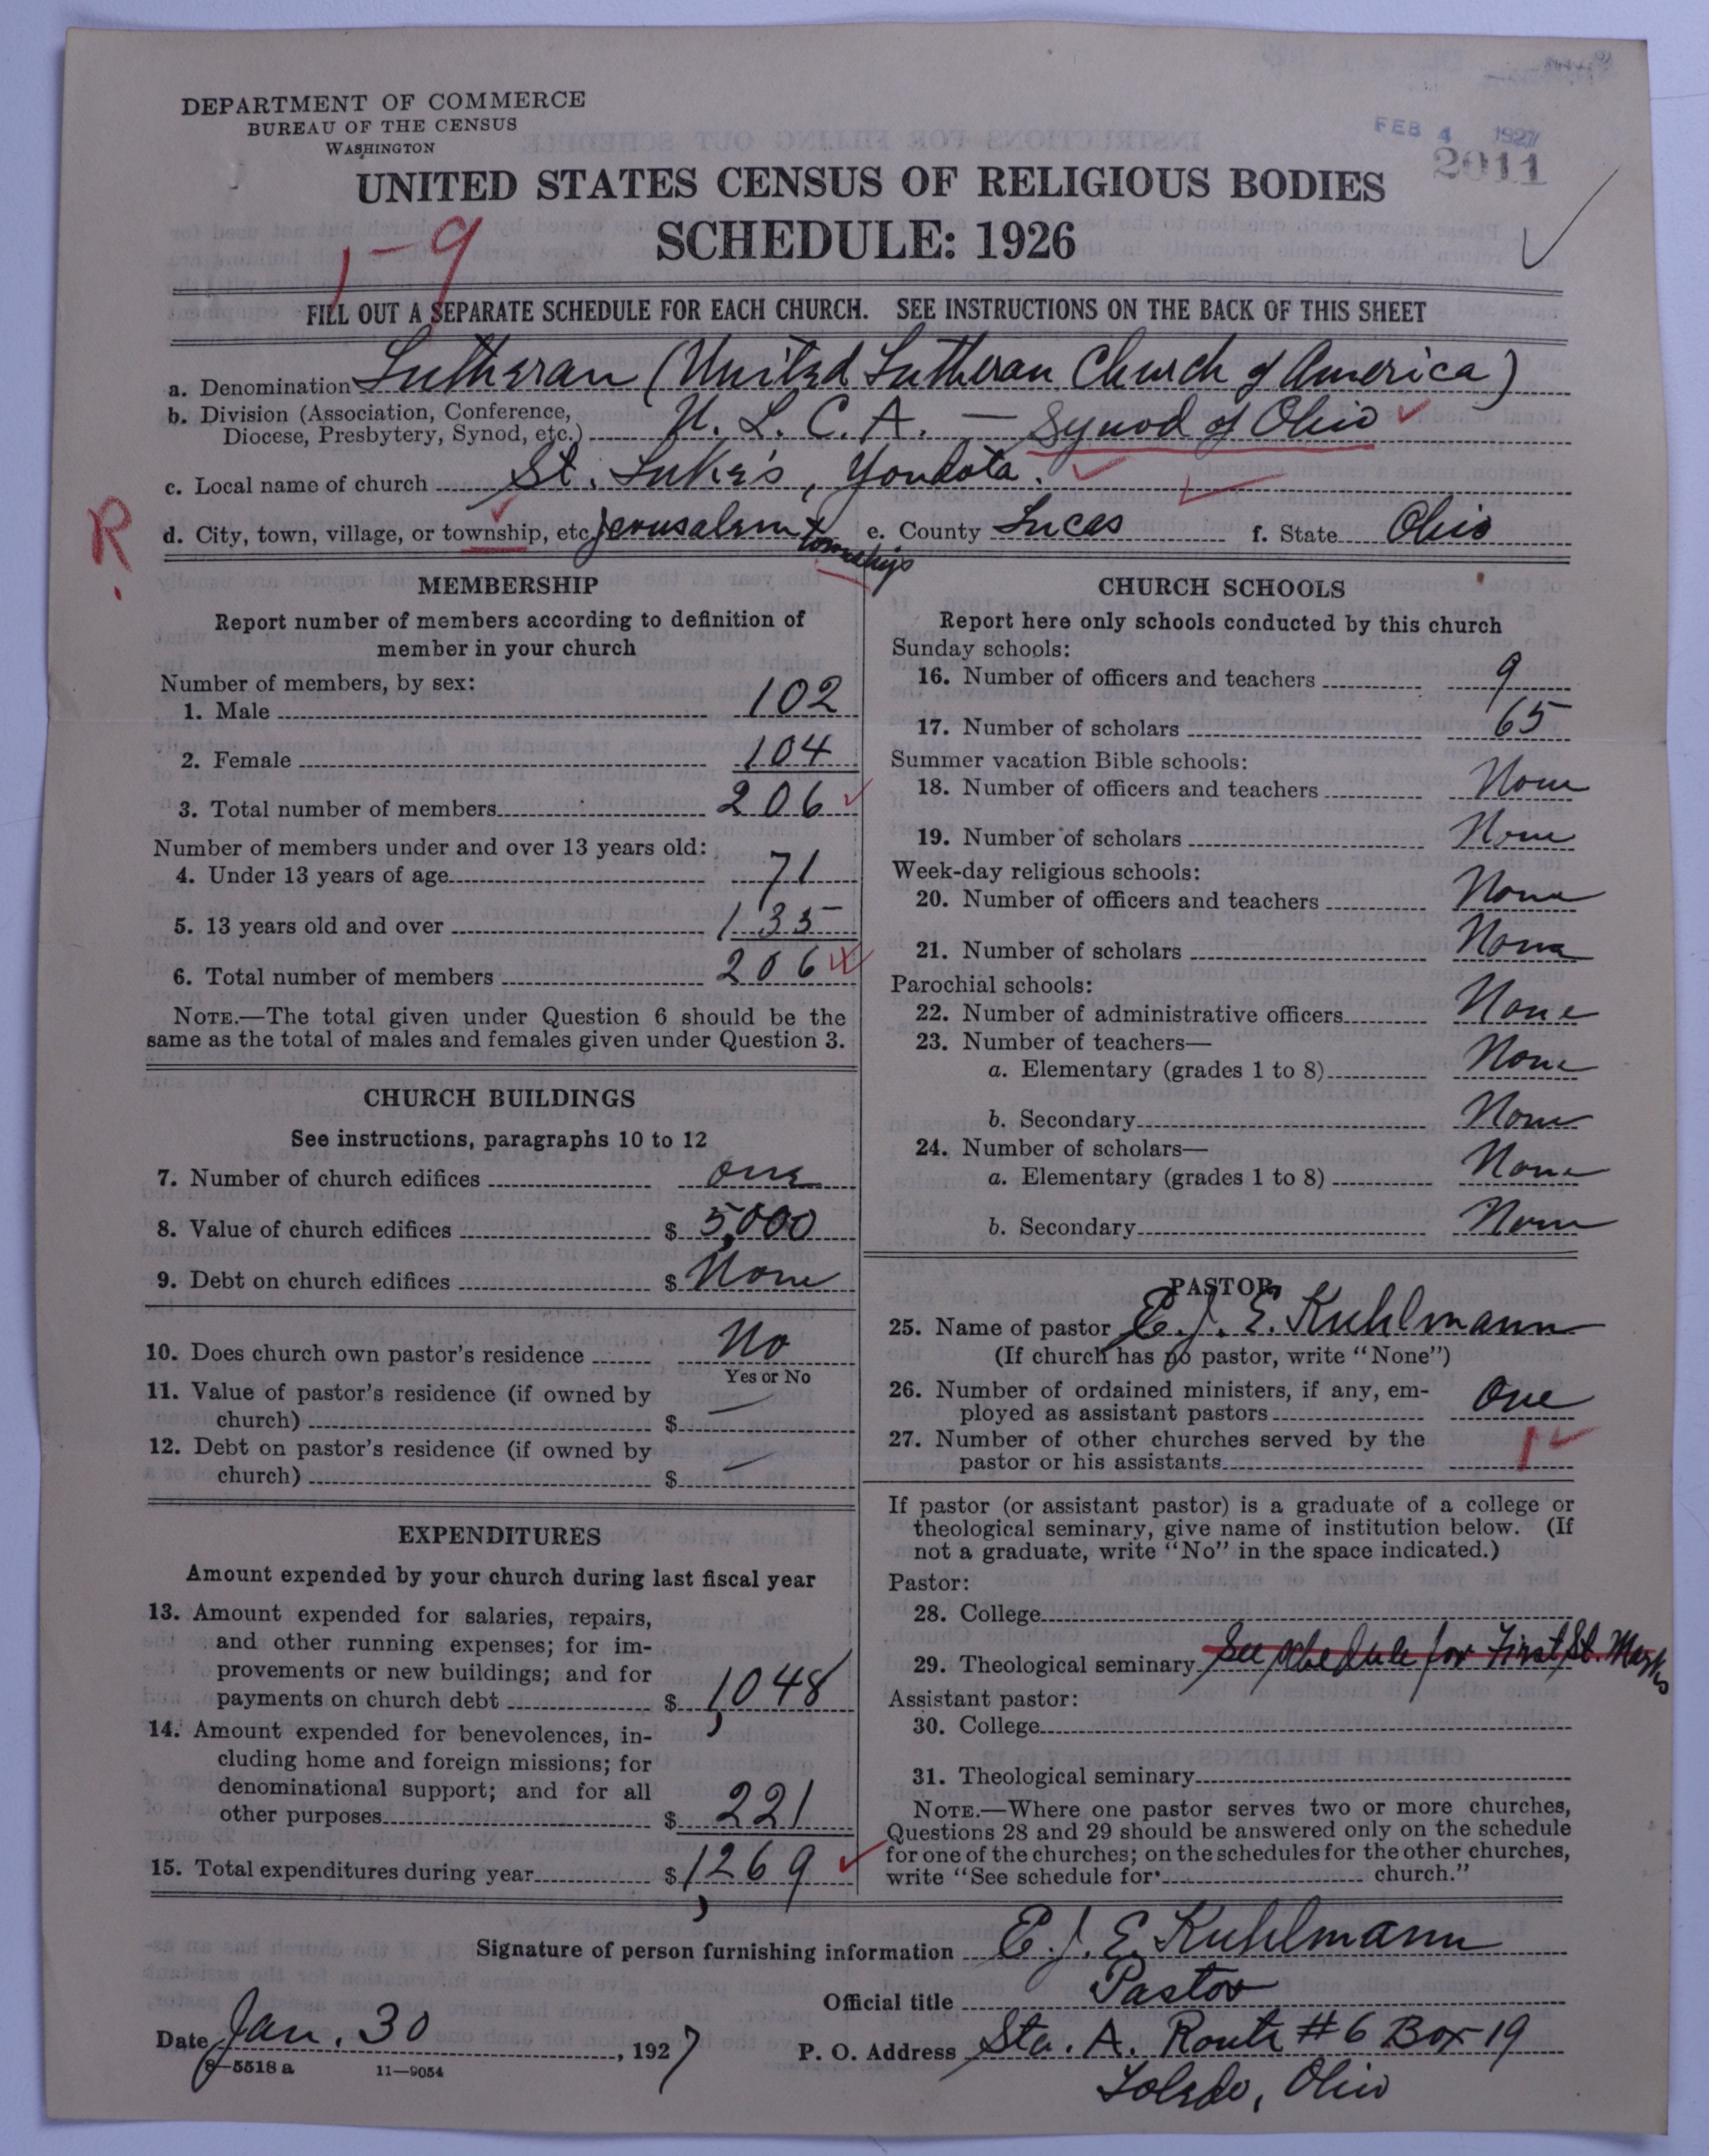 DEPARTMENT OF COMMERCE
BUREAU OF THE CENSUS
WASHINGTON
FEB 4 1927
2011
UNITED STATES CENSUS OF RELIGIOUS BODIES
SCHEDULE: 1926
1-9
FILL OUT A SEPARATE SCHEDULE FOR EACH CHURCH. SEE INSTRUCTIONS ON THE BACK OF THIS SHEET
a. Denomination Lutheran (United Lutheran Church of America)
b. Division (Association, Conference,
Diocese, Presbytery, Synod, etc.) U. L. C. A. — Synod of Ohio
c. Local name of church St. Luke's, Yondota.
R.
d. City, town, village, or township, etc Jerusalem township e. County Lucas f. State Ohio
MEMBERSHIP
Report number of members according to definition of
member in your church
Number of members, by sex:
1. Male 102
2. Female 104
3. Total number of members 206
Number of members under and over 13 years old:
4. Under 13 years of age 71
5. 13 years old and over 135
6. Total number of members 206
NOTE.—The total given under Question 6 should be the
same as the total of males and females given under Question 3.
CHURCH BUILDINGS
See instructions, paragraphs 10 to 12
7. Number of church edifices one
8. Value of church edifices $ 5,000
9. Debt on church edifices $ None
10. Does church own pastor's residence No
Yes or No
11. Value of pastor's residence (if owned by
church) $ —
12. Debt on pastor's residence (if owned by
church) $ —
EXPENDITURES
Amount expended by your church during last fiscal year
13. Amount expended for salaries, repairs,
and other running expenses; for im-
provements or new buildings; and for
payments on church debt $ 1,048
14. Amount expended for benevolences, in-
cluding home and foreign missions; for
denominational support; and for all
other purposes $ 221
15. Total expenditures during year $ 1,269
CHURCH SCHOOLS
Report here only schools conducted by this church
Sunday schools:
16. Number of officers and teachers 9
17. Number of scholars 65
Summer vacation Bible schools:
18. Number of officers and teachers None
19. Number of scholars None
Week-day religious schools:
20. Number of officers and teachers None
21. Number of scholars None
Parochial schools:
22. Number of administrative officers None
23. Number of teachers—
a. Elementary (grades 1 to 8) None
b. Secondary None
24. Number of scholars—
a. Elementary (grades 1 to 8) None
b. Secondary None
PASTOR
25. Name of pastor E. J. E. Kuhlmann
(If church has no pastor, write "None")
26. Number of ordained ministers, if any, em-
ployed as assistant pastors One
27. Number of other churches served by the
pastor or his assistants 1
If pastor (or assistant pastor) is a graduate of a college or
theological seminary, give name of institution below. (If
not a graduate, write "No" in the space indicated.)
Pastor:
28. College
29. Theological seminary See schedule for First St. Mark's
Assistant pastor:
30. College
31. Theological seminary
NOTE.—Where one pastor serves two or more churches,
Questions 28 and 29 should be answered only on the schedule
for one of the churches; on the schedules for the other churches,
write "See schedule for church."
Signature of person furnishing information E. J. E. Kuhlmann
Official title Pastor
Date Jan. 30, 1927
P. O. Address Sta. A. Route #6 Box 19
Toledo, Ohio
8—5518 a 11—9054